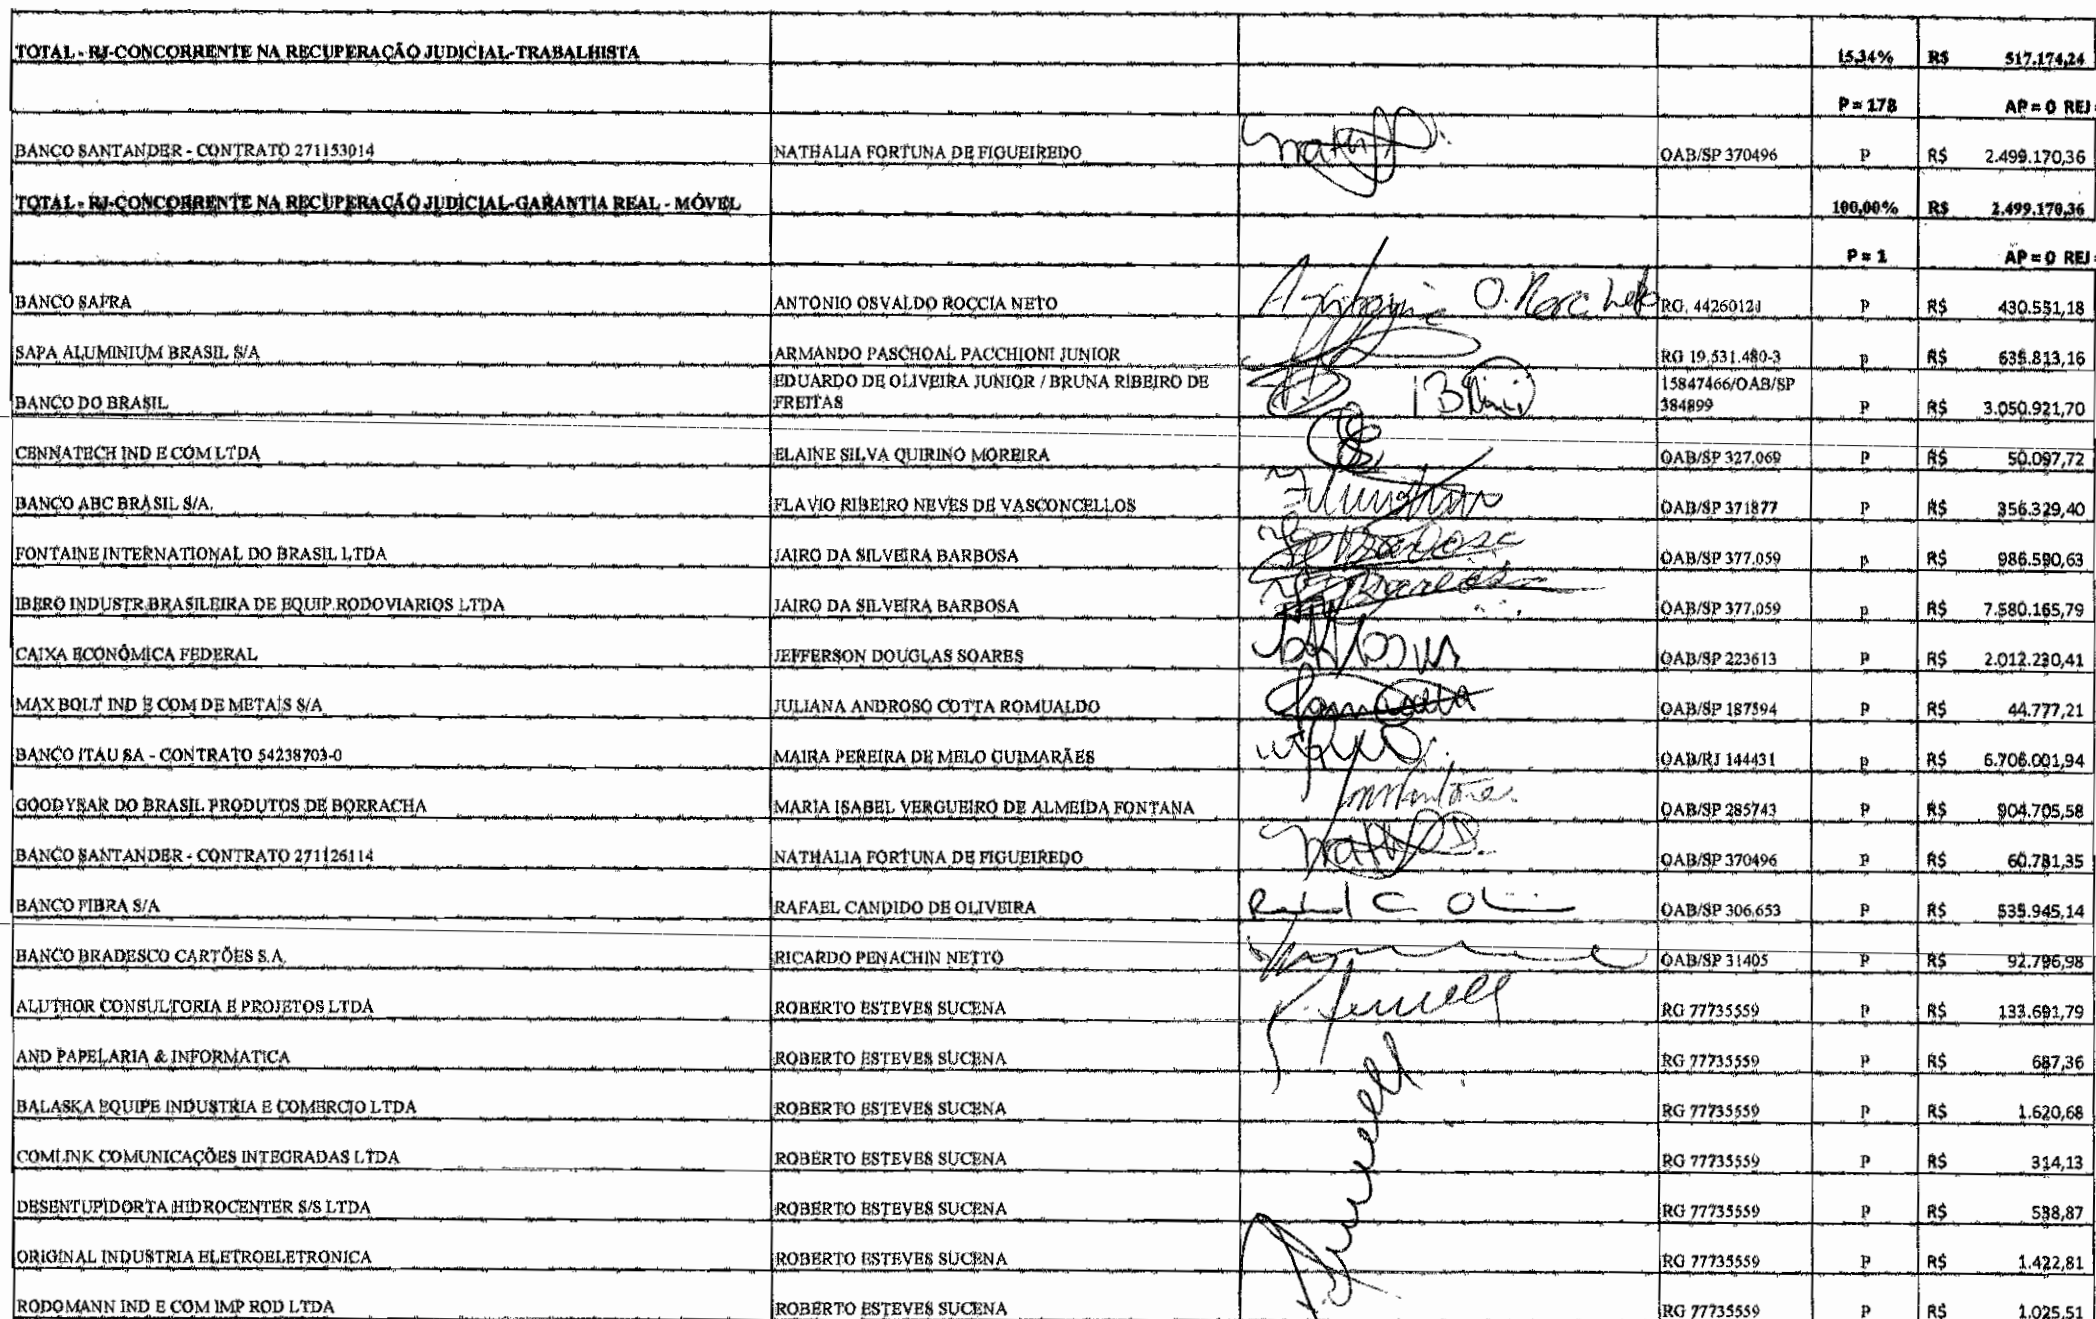 TOTAL - RJ-CONCORRENTE NA RECUPERAÇÃO JUDICIAL-TRABALHISTA 15,34% R$ 517.174,24
P = 178 AP = 0 REJ
BANCO SANTANDER - CONTRATO 271153014 NATHALIA FORTUNA DE FIGUEIREDO OAB/SP 370496 P R$ 2.499.170,36
TOTAL - RJ-CONCORRENTE NA RECUPERAÇÃO JUDICIAL-GARANTIA REAL - MÓVEL 100,00% R$ 2.499.170,36
P = 1 AP = 0 REJ
BANCO SAFRA ANTONIO OSVALDO ROCCIA NETO RG. 44260121 P R$ 430.551,18
SAPA ALUMINIUM BRASIL S/A ARMANDO PASCHOAL PACCHIONI JUNIOR RG 19.531.480-3 P R$ 635.813,16
BANCO DO BRASIL EDUARDO DE OLIVEIRA JUNIOR / BRUNA RIBEIRO DE FREITAS 15847466/OAB/SP 384899 P R$ 3.050.921,70
CENNATECH IND E COM LTDA ELAINE SILVA QUIRINO MOREIRA OAB/SP 327.069 P R$ 50.097,72
BANCO ABC BRASIL S/A. FLAVIO RIBEIRO NEVES DE VASCONCELLOS OAB/SP 371877 P R$ 356.329,40
FONTAINE INTERNATIONAL DO BRASIL LTDA JAIRO DA SILVEIRA BARBOSA OAB/SP 377.059 P R$ 986.590,63
IBERO INDUSTR.BRASILEIRA DE EQUIP.RODOVIARIOS LTDA JAIRO DA SILVEIRA BARBOSA OAB/SP 377.059 P R$ 7.580.165,79
CAIXA ECONÔMICA FEDERAL JEFFERSON DOUGLAS SOARES OAB/SP 223613 P R$ 2.012.230,41
MAX BOLT IND E COM DE METAIS S/A JULIANA ANDROSO COTTA ROMUALDO OAB/SP 187594 P R$ 44.777,21
BANCO ITAU SA - CONTRATO 54238703-0 MAIRA PEREIRA DE MELO GUIMARÃES OAB/RJ 144431 P R$ 6.706.001,94
GOODYEAR DO BRASIL PRODUTOS DE BORRACHA MARIA ISABEL VERGUEIRO DE ALMEIDA FONTANA OAB/SP 285743 P R$ 904.705,58
BANCO SANTANDER - CONTRATO 271126114 NATHALIA FORTUNA DE FIGUEIREDO OAB/SP 370496 P R$ 60.781,35
BANCO FIBRA S/A RAFAEL CANDIDO DE OLIVEIRA OAB/SP 306.653 P R$ 535.945,14
BANCO BRADESCO CARTÕES S.A. RICARDO PENACHIN NETTO OAB/SP 31405 P R$ 92.796,98
ALUTHOR CONSULTORIA E PROJETOS LTDA ROBERTO ESTEVES SUCENA RG 77735559 P R$ 133.691,79
AND PAPELARIA & INFORMATICA ROBERTO ESTEVES SUCENA RG 77735559 P R$ 687,36
BALASKA EQUIPE INDUSTRIA E COMERCIO LTDA ROBERTO ESTEVES SUCENA RG 77735559 P R$ 1.620,68
COMLINK COMUNICAÇÕES INTEGRADAS LTDA ROBERTO ESTEVES SUCENA RG 77735559 P R$ 314,13
DESENTUPIDORTA HIDROCENTER S/S LTDA ROBERTO ESTEVES SUCENA RG 77735559 P R$ 538,87
ORIGINAL INDUSTRIA ELETROELETRONICA ROBERTO ESTEVES SUCENA RG 77735559 P R$ 1.422,81
RODOMANN IND E COM IMP ROD LTDA ROBERTO ESTEVES SUCENA RG 77735559 P R$ 1.025,51